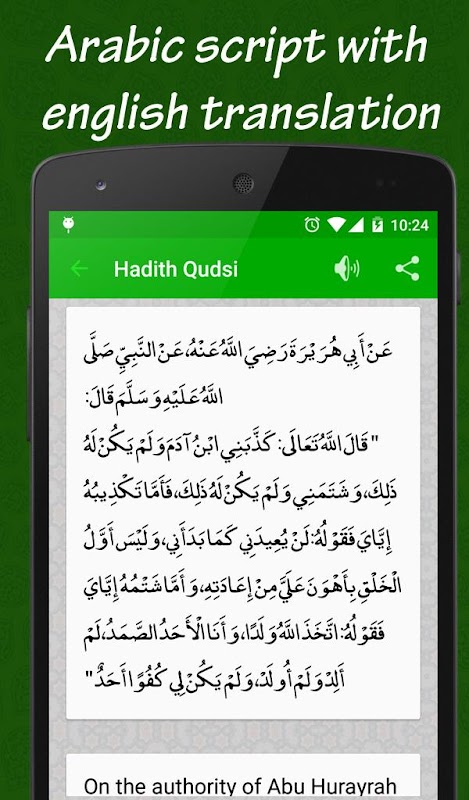 Arabic script with
english translation
10:24
Hadith Qudsi
عَنْ أَبِي هُرَيْرَةَ رَضِيَ اللَّهُ عَنْهُ، عَنْ النَّبِيِّ صَلَّى
اللَّهُ عَلَيْهِ وَسَلَّمَ قَالَ:
"قَالَ اللَّهُ تَعَالَى: كَذَّبَنِي ابْنُ آدَمَ وَلَمْ يَكُنْ لَهُ
ذَلِكَ، وَشَتَمَنِي وَلَمْ يَكُنْ لَهُ ذَلِكَ، فَأَمَّا تَكْذِيبُهُ
إِيَّايَ فَقَوْلُهُ: لَنْ يُعِيدَنِي كَمَا بَدَأَنِي، وَلَيْسَ أَوَّلُ
الْخَلْقِ بِأَهْوَنَ عَلَيَّ مِنْ إِعَادَتِهِ، وَأَمَّا شَتْمُهُ إِيَّايَ
فَقَوْلُهُ: اتَّخَذَ اللَّهُ وَلَدًا، وَأَنَا الْأَحَدُ الصَّمَدُ، لَمْ
أَلِدْ وَلَمْ أُولَدْ، وَلَمْ يَكُنْ لِي كُفُوًا أَحَدٌ"
On the authority of Abu Hurayrah